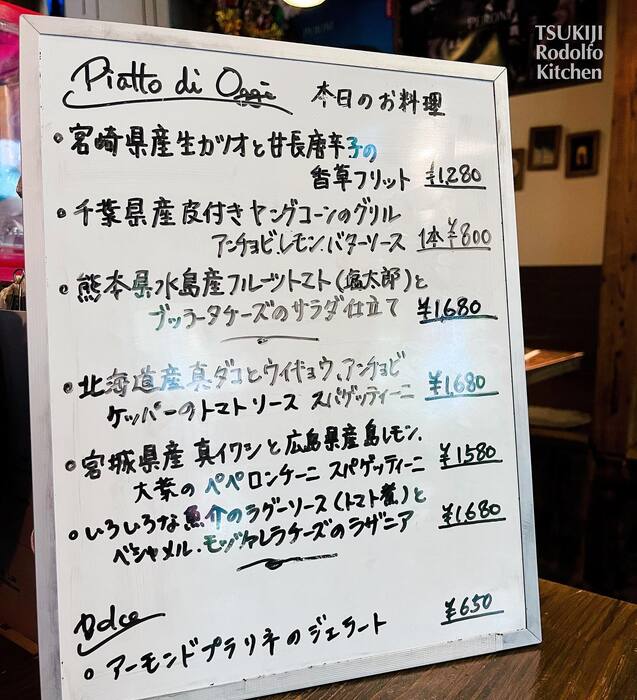 TSUKIJI
Rodolfo
Kitchen
Piatto di Oggi 本日のお料理
・宮崎県産生カツオと甘長唐辛子の
香草フリット ¥1,280
・千葉県産皮付きヤングコーンのグリル
アンチョビ、レモン、バターソース 1本¥800
・熊本県水島産フルーツトマト(塩太郎)と
ブッラータチーズのサラダ仕立て ¥1,680
・北海道産真ダコとウイキョウ、アンチョビ
ケッパーのトマトソース スパゲッティーニ ¥1,680
・宮城県産 真イワシと広島県産島レモン、
大葉のペペロンチーニ スパゲッティーニ ¥1580
・いろいろな魚介のラグーソース(トマト煮)と
ベシャメル・モッツァレラチーズのラザニア ¥1,680
Dolce
・アーモンドプラリネのジェラート ¥650